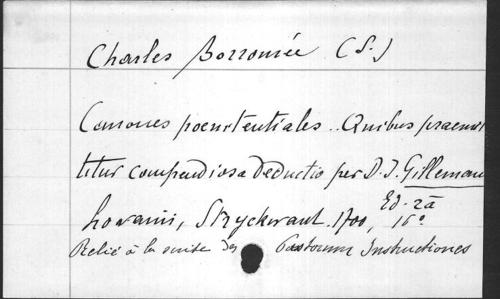 Charles Borromée (S.)
Canones poenitentiales.. Quibus praemit
titur compendiosa deductio per D. J. Gilleman
Ed. 2a
Lovanii, Stryckwant. 1700, 16°
Relié à la suite des Pastorum Instructiones